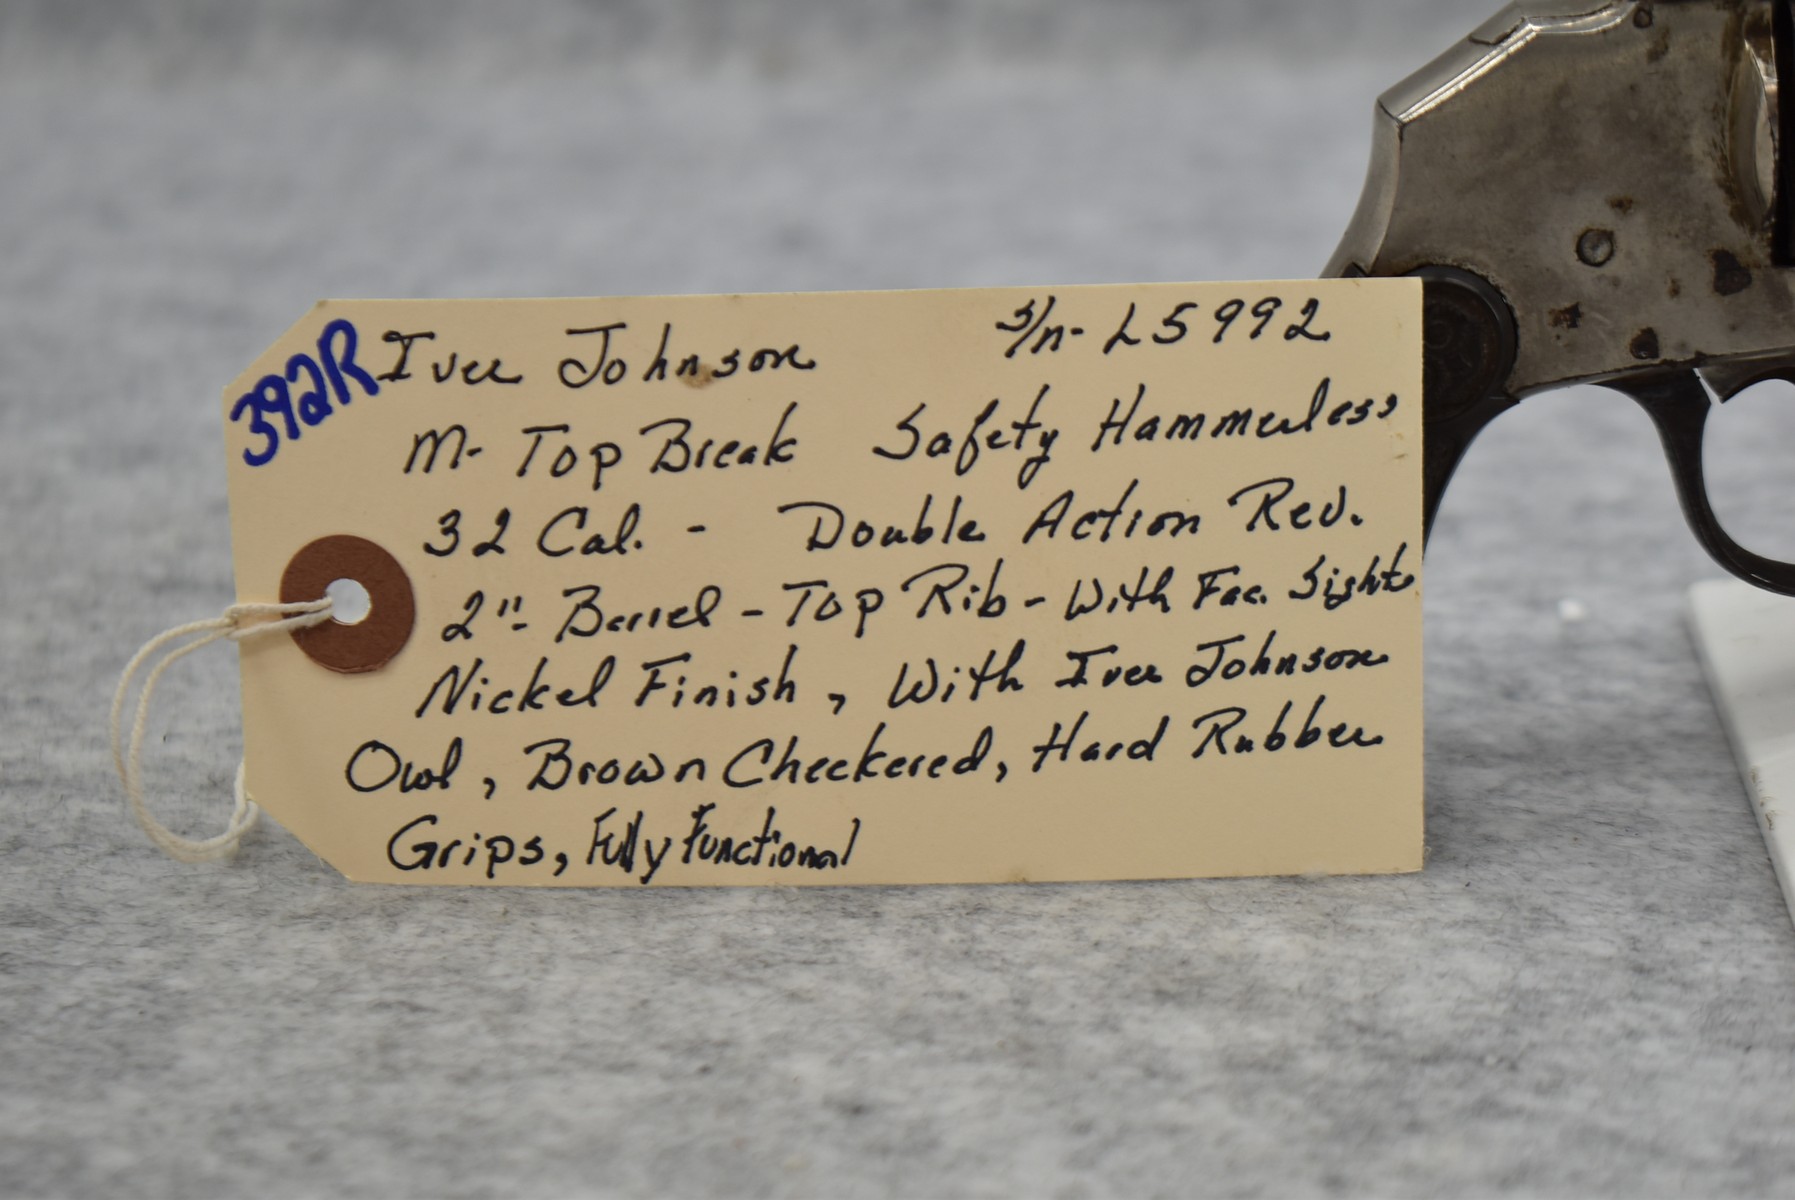 392R
Iver Johnson s/n- L5992
M- Top Break Safety Hammerless
32 Cal. - Double Action Rev.
2"- Barrel - Top Rib - With Fac. Sights
Nickel Finish, With Iver Johnson
Owl, Brown Checkered, Hard Rubber
Grips, Fully Functional